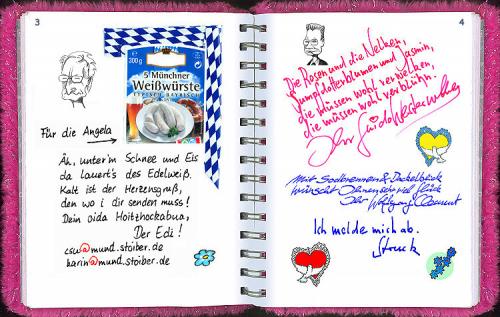 3
300 g
5 Münchner
Weißwürste
TYPISCH BAYRISCH
Für die Angela
Äh, unter'm Schnee und Eis
da lauert's des Edelweiß.
Kalt ist der Herzensgruß,
den wo i dir senden muss!
Dein oida Hoitzhockabua,
Der Edi!
csu@mund.stoiber.de
karin@mund.stoiber.de
4
Die Rosen und die Nelken,
Sumpfdotterblumen und Jasmin,
die müssen wohl verwelken,
die müssen wohl verblühn.
Ihr Guido Westerwelle
Mit Sodbrennen & Dackelblick
wünscht Ihnen sehr viel Glück
Ihr Wolfgang Clement
Ich melde mich ab.
Struck